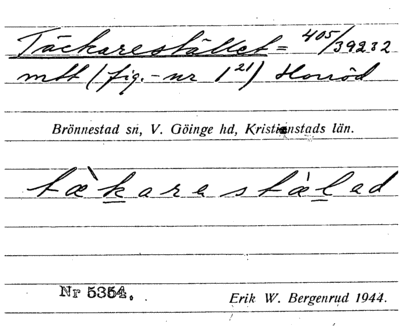 Täckarestället = 405/39232
mtt (fig.-nr 1²¹) Horröd
Brönnestad sn, V. Göinge hd, Kristianstads län.
tæ̀karestäl̲ad
Nr 5354.
Erik W. Bergenrud 1944.